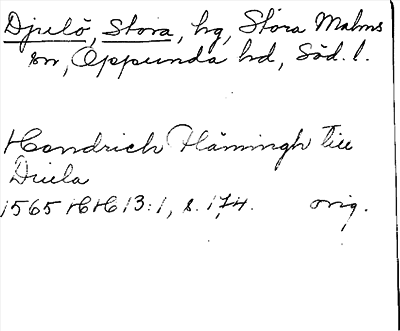 Djulö, Stora, hg, Stora Malms
sn, Oppunda hd, Söd. l.
Hendrich Flämingh till
Diula
1565 HH 13:1, s. 174. orig.